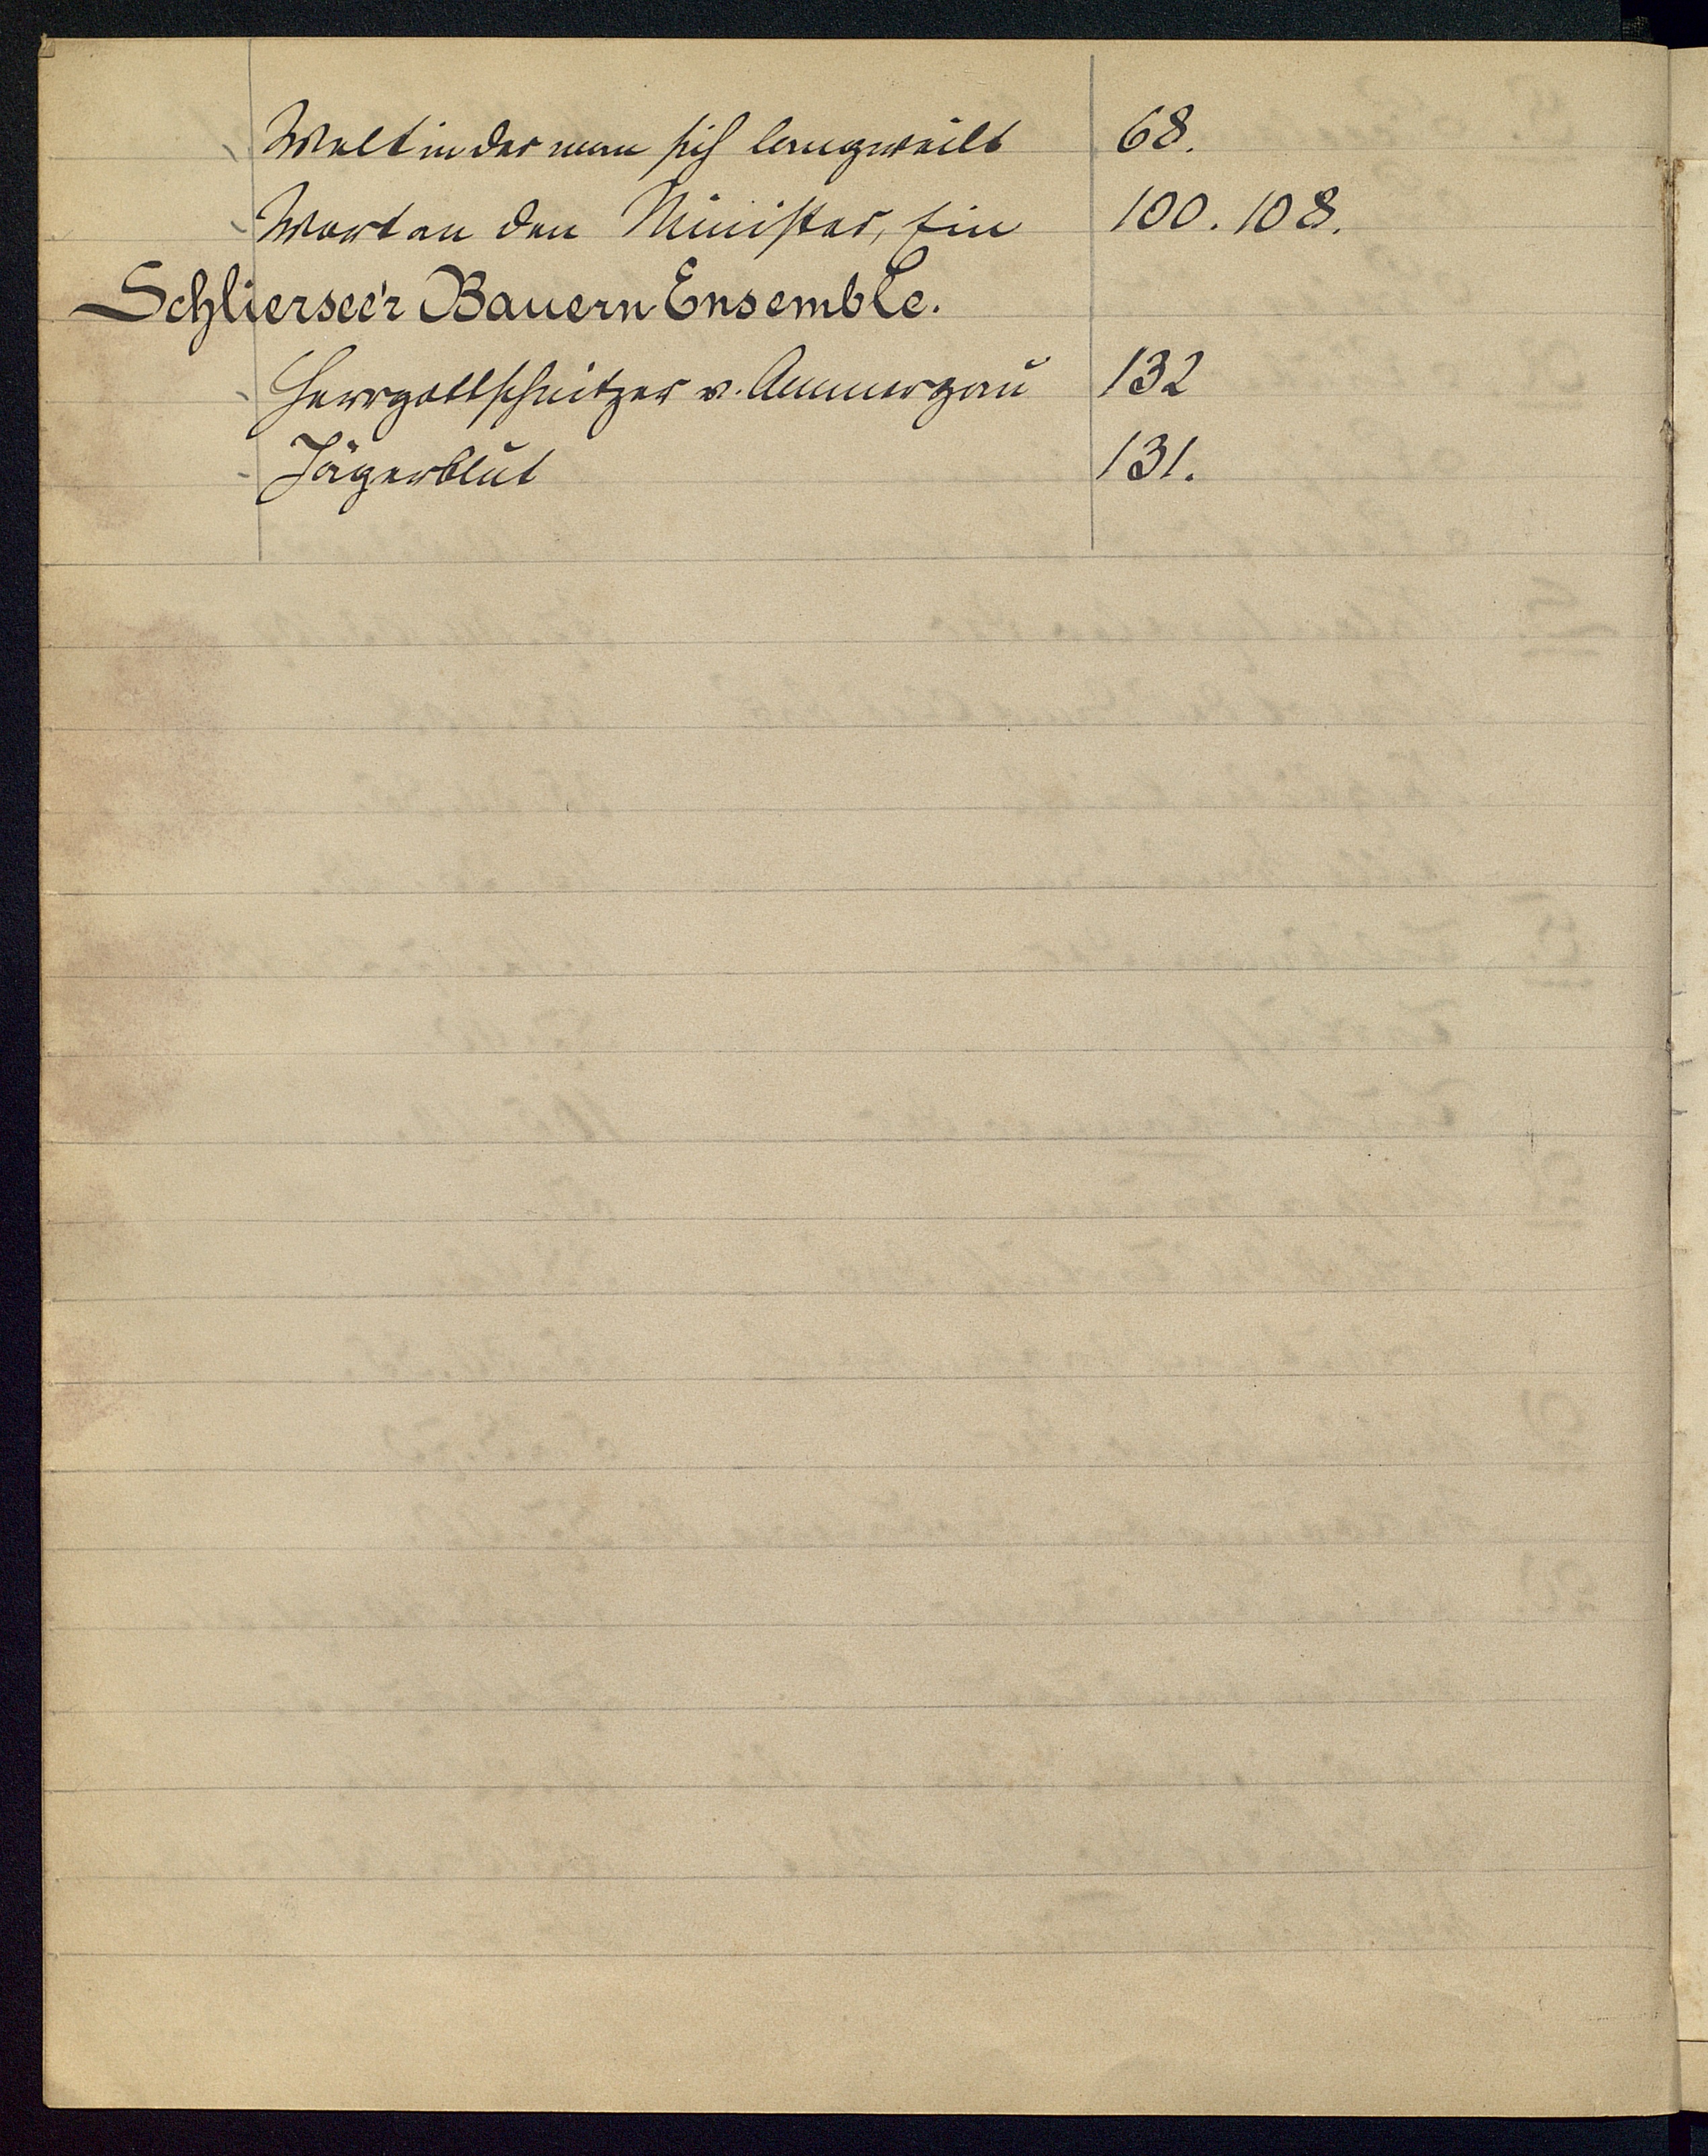 Welt in der man sich langweilt 68.
Wort an den Minister, Ein 100. 108.
Schlierseeʼr Bauern Ensemble.
Herrgottschnitzer v. Ammergau 132
Jägerblut 131.